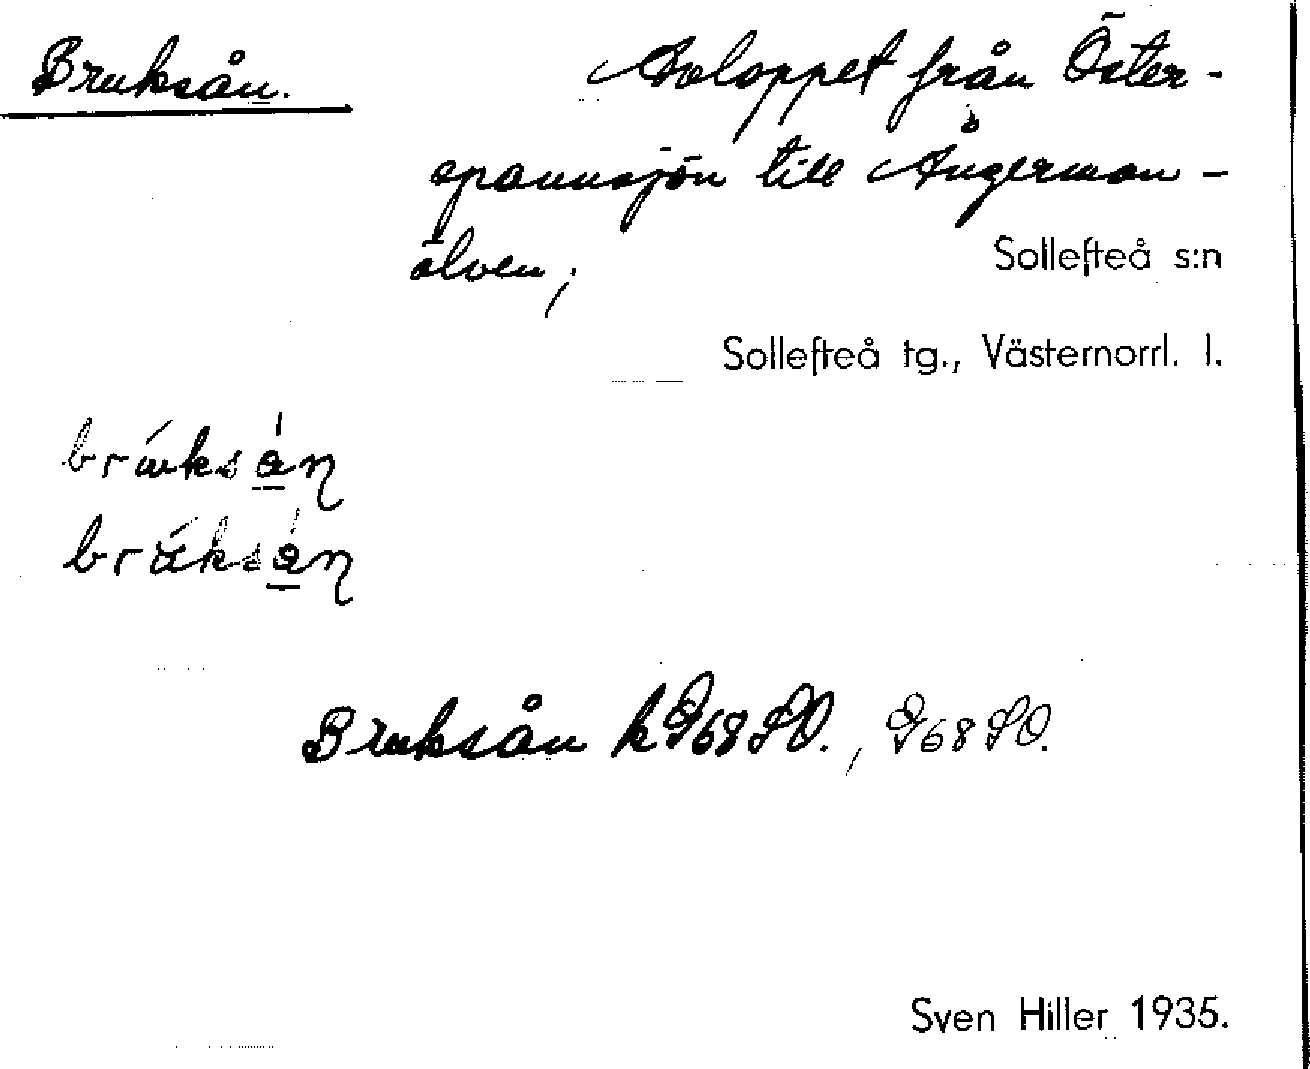 Bruksån.
Avloppet från Öster-
spannsjön till Ångerman-
älven,
Sollefteå s:n
Sollefteå tg., Västernorrl. l.
Bruksån k
Sven Hiller 1935.